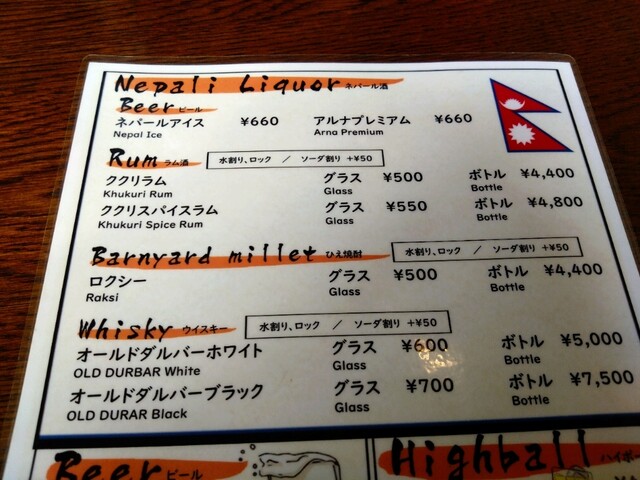 Nepali Liquor ネパール酒
Beer ビール
ネパールアイス ¥660 アルナプレミアム ¥660
Nepal Ice Arna Premium
Rum ラム酒 水割り、ロック / ソーダ割り +¥50
ククリラム グラス ¥500 ボトル ¥4,400
Khukuri Rum Glass Bottle
ククリスパイスラム グラス ¥550 ボトル ¥4,800
Khukuri Spice Rum Glass Bottle
Barnyard millet ひえ焼酎 水割り、ロック / ソーダ割り +¥50
ロクシー グラス ¥500 ボトル ¥4,400
Raksi Glass Bottle
Whisky ウイスキー 水割り、ロック / ソーダ割り +¥50
オールドダルバーホワイト グラス ¥600 ボトル ¥5,000
OLD DURBAR White Glass Bottle
オールドダルバーブラック グラス ¥700 ボトル ¥7,500
OLD DURAR Black Glass Bottle
Beer ビール Highball ハイボー